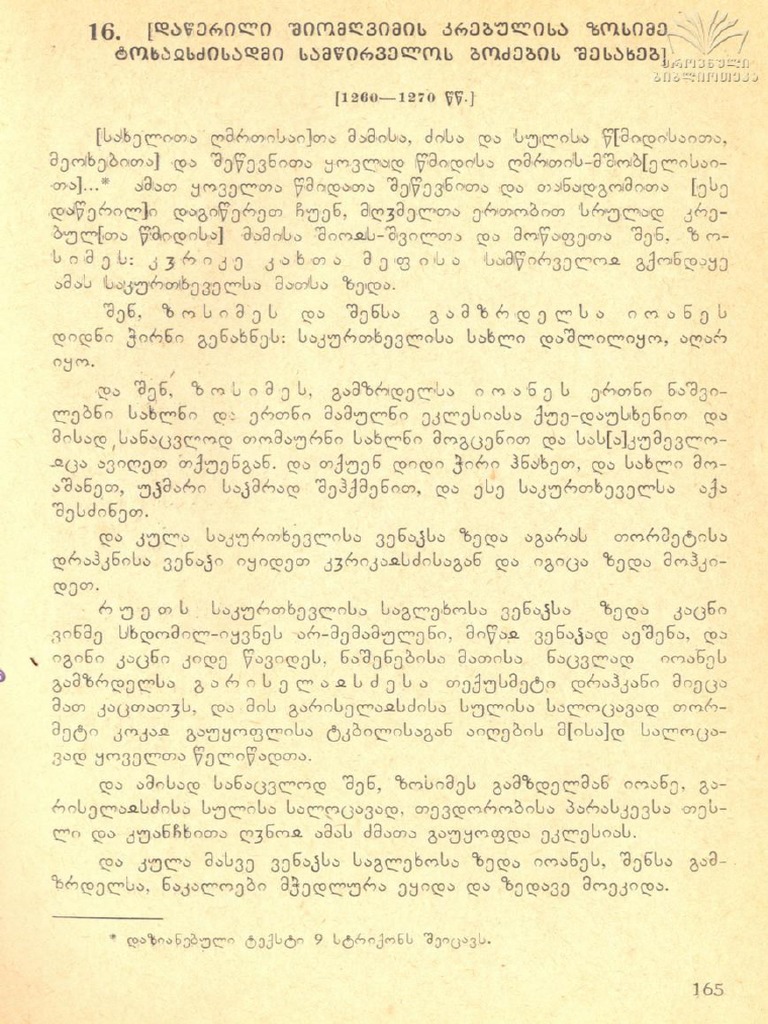 16. [დაწერილი შიომღვიმის კრებულისა ზოსიმე
ტოხაჲსძისადმი სამწირველოს ბოძების შესახებ]
ეროვნული
ბიბლიოთეკა
[1260—1270 წწ.]
[სახელითა ღმრთისაი]თა მამისა, ძისა და სულისა წ[მიდისაითა,
მეოხებითა] და შეწევნითა ყოვლად წმიდისა ღმრთის-მშობ[ელისაი-
თა]...* ამათ ყოველთა წმიდათა შეწევნითა და თანადგომითა [ესე
დაწერილ]ი დაგიწერეთ ჩუენ, მღჳმელთა ერთობით სრულად კრე-
ბულ[თა წმიდისა] მამისა შიოჲს-შვილთა და მოწაფეთა შენ, ზო-
სიმეს: კჳრიკე კახთა მეფისა სამწირველოჲ გქონდაყე
ამას საკურთხეველსა მათსა ზედა.
შენ, ზოსიმეს და შენსა გამზრდელსა იოანეს
დიდნი ჭირნი გენახნეს: საკურთხევლისა სახლი დაშლილიყო, აღარ
იყო.
და შენ, ზოსიმეს, გამზრდელსა იოანეს ერთნი ნაშვი-
ლებნი სახლნი და ერთნი მამულნი ეკლესიასა ქუე-დაუსხენით და
მისად სანაცვლოდ თომაურნი სახლნი მოგცენით და სას[ა]კუმევლო-
ჲცა ავიღეთ თქუენგან. და თქუენ დიდი ჭირი ჰნახეთ, და სახლი მო-
აშანეთ, უჴმარი საჴმრად შეჰქმენით, და ესე საკურთხეველსა აქა
შესძინეთ.
და კულა საკურთხევლისა ვენაჴსა ზედა აგარას თორმეტისა
დრაჰკნისა ვენაჴი იყიდეთ კჳრიკაჲსძისაგან და იგიცა ზედა მოჰკი-
დეთ.
რუეთს საკურთხევლისა საგლეხოსა ვენაჴსა ზედა კაცნი
ვინმე სხდომილ-იყვნეს არ-მემამულენი, მიწაჲ ვენაჴად აეშენა, და
იგინი კაცნი კიდე წავიდეს, ნაშენებისა მათისა ნაცვლად იოანეს
გამზრდელსა გარისელაჲსძესა თექუსმეტი დრაჰკანი მიეცა
მათ კაცთათჳს, და მის გარისელაჲსძისა სულისა სალოცავად თორ-
მეტი კოკაჲ გაუყოფლისა ტკბილისაგან აიღების მ[ისა]დ სალოცა-
ვად ყოველთა წელიწადთა.
და ამისად სანაცვლოდ შენ, ზოსიმეს გამზდელმან იოანე, გა-
რისელაჲსძისა სულისა სალოცავად, თევდორობისა პარასკევსა თეს-
ლი და კუანჩხითა ღჳნოჲ ამას ძმათა გაუყოფდა ეკლესიას.
და კულა მასვე ვენაჴსა საგლეხოსა ზედა იოანეს, შენსა გამ-
ზრდელსა, ნაკალოები მჭედლურა ეყიდა და ზედავე მოეკიდა.
* დაზიანებული ტექსტი 9 სტრიქონს შეიცავს.
165